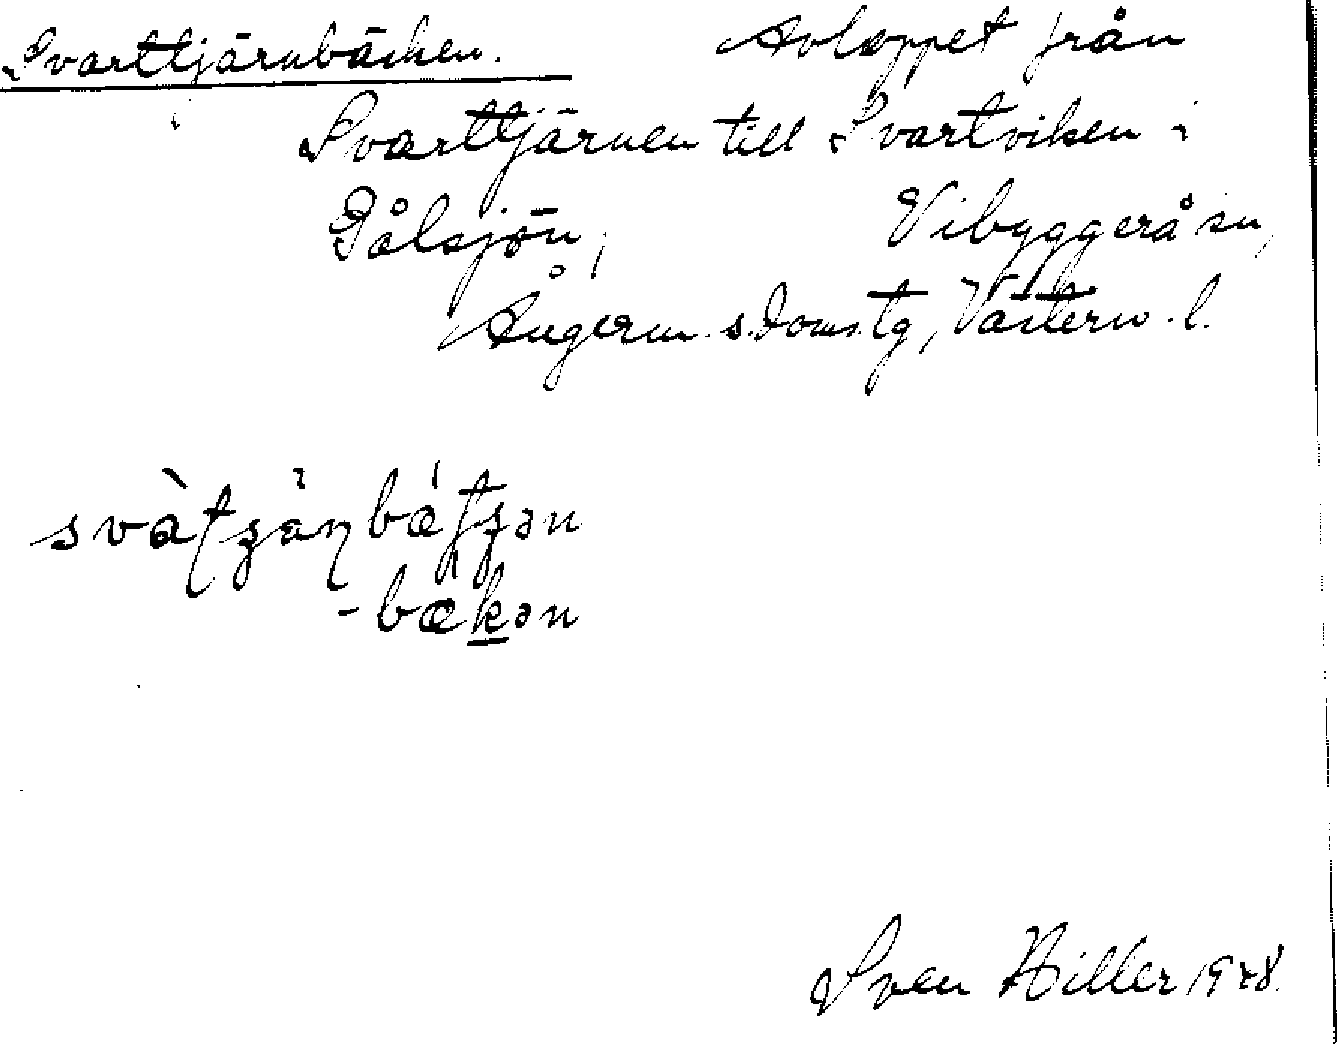 Svarttjärnbäcken. Avloppet från
Svarttjärnen till Svartviken i
Gålsjön, Vibyggerå sn,
Ångerm. s. doms. tg, Västern. l.
svàʈʂä̀ɳbǽʈʂən
-bækən
Sven Hiller 1948.